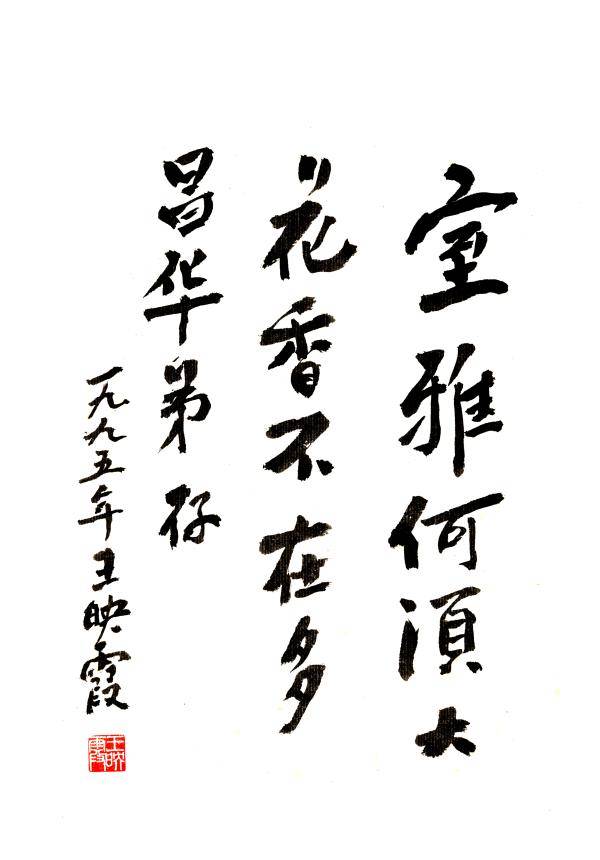 室雅何須大
花香不在多
昌华弟存
一九九五年王映霞
王映霞